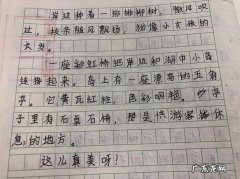 岸边种着一排排柳树,微风吹
过,枝条随风飘扬,就像小女孩的
头发。
一座彩虹桥把岸边和湖中小岛
连接起来。岛上有一座漂亮的五角
亭。它黄瓦红柱,色彩明艳。亭
子里有石桌石椅,那是供游客休
息的地方。
这儿真美呀!
广东龙网